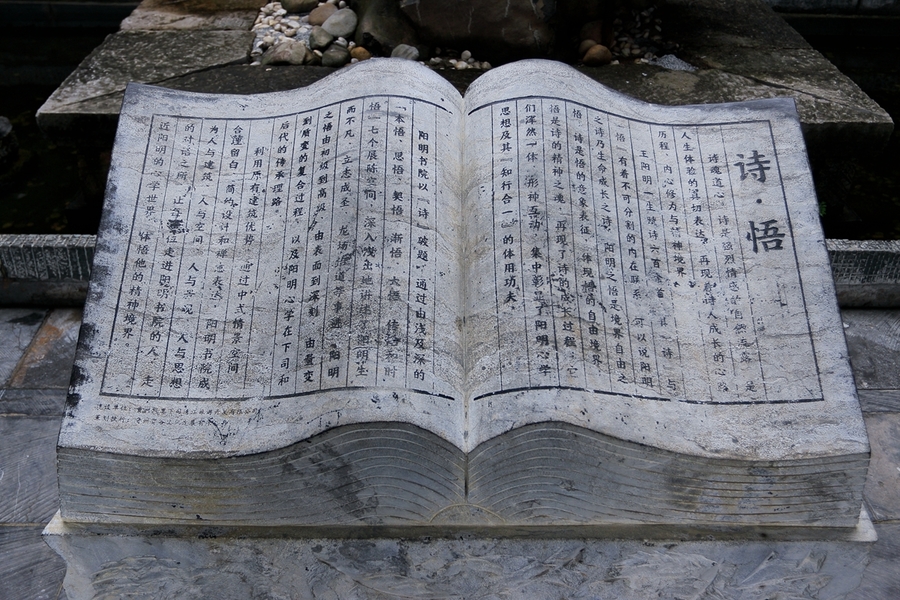 诗·悟
诗魂道心，诗是强烈情感的自然流露，是
人生体验的真切表达，再现着诗人成长的心路
历程、内心修为与精神境界。
王阳明一生赋诗六百余首，其“诗”与
“悟”有着不可分割的内在联系，可以说阳明
之诗乃生命成长之诗，阳明之悟是境界自由之
悟。诗是悟的意象表征，体现悟的自由境界，
悟是诗的精神之魂，再现了诗的成长过程，它
们浑然一体，形神互动，集中彰显了阳明心学
思想及其“知行合一”的体用功夫。
阳明书院以“诗”破题，通过由浅及深的
“本悟、思悟、契悟、渐悟、大悟、
悟”七个展陈空间，深入浅出地讲述了阳明生
而不凡、立志成圣、龙场悟道等事迹，阳明
之悟由初级到高级、由表面到深刻、由量变
到质变的复合过程，以及阳明心学在下司和
后代的传承理路。
利用原有建筑优势，通过中式情景空间、
合理留白、简约设计和禅意表达，阳明书院成
为人与建筑、人与空间、人与景观、人与思想
的对话之所，让每一位走进阳明书院的人，走
近阳明的心学世界，体悟他的精神境界。